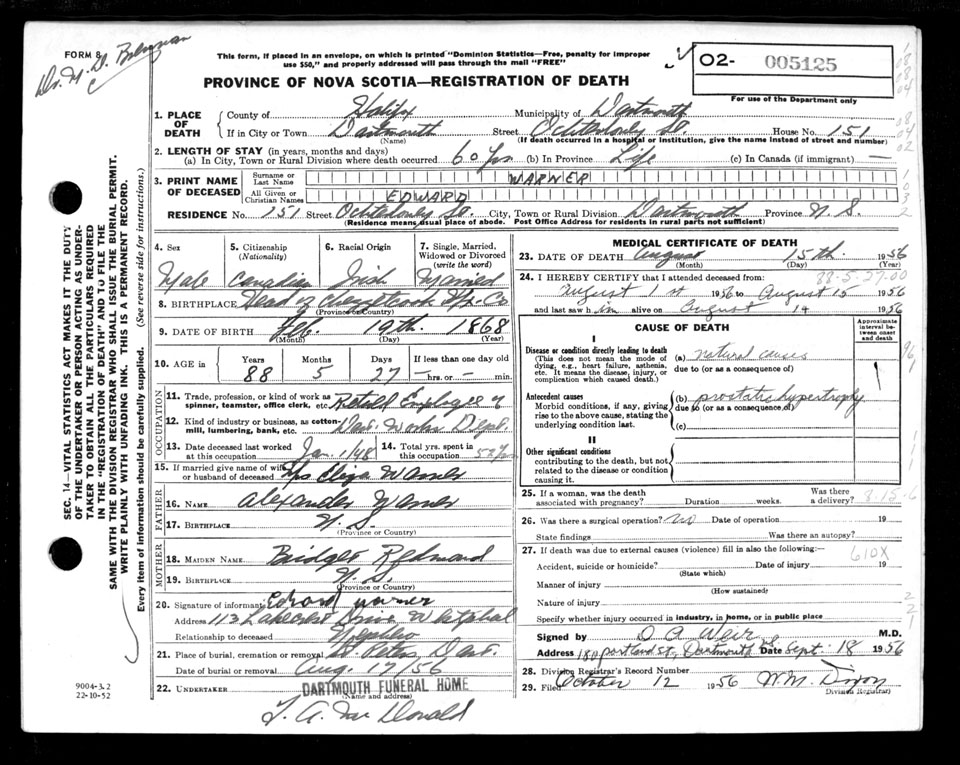 FORM 8
Dr. M. G. Brennan
This form, if placed in an envelope, on which is printed "Dominion Statistics—Free, penalty for improper
use $50," and properly addressed will pass through the mail "FREE"
PROVINCE OF NOVA SCOTIA—REGISTRATION OF DEATH
02- 005125
For use of the Department only
SEC. 14—VITAL STATISTICS ACT MAKES IT THE DUTY
OF THE UNDERTAKER OR PERSON ACTING AS UNDER-
TAKER TO OBTAIN ALL THE PARTICULARS REQUIRED
IN THE "REGISTRATION OF DEATH" AND TO FILE THE
SAME WITH THE DIVISION REGISTRAR WHO SHALL ISSUE THE BURIAL PERMIT.
WRITE PLAINLY WITH UNFADING INK. THIS IS A PERMANENT RECORD.
Every item of information should be carefully supplied. (See reverse side for instructions.)
1. PLACE OF DEATH
County of Halifax Municipality of Dartmouth
If in City or Town Dartmouth Street Ochterloney St. House No. 151
(Name) (If death occurred in a hospital or institution, give the name instead of street and number)
2. LENGTH OF STAY (in years, months and days)
(a) In City, Town or Rural Division where death occurred 60 yrs (b) In Province Life (c) In Canada (if immigrant) —
3. PRINT NAME OF DECEASED
Surname or Last Name WARNER
All Given or Christian Names EDWARD
RESIDENCE No. 151 Street Ochterloney St. City, Town or Rural Division Dartmouth Province N.S.
(Residence means usual place of abode. Post Office Address for residents in rural parts not sufficient)
4. Sex 5. Citizenship (Nationality) 6. Racial Origin 7. Single, Married, Widowed or Divorced (write the word)
Male Canadian Irish Married
8. BIRTHPLACE Head of Chezzetcook Hfx. Co
(Province or Country)
9. DATE OF BIRTH Feb. 19th. 1868
(Month) (Day) (Year)
10. AGE Years Months Days If less than one day old
88 5 27 — hrs. or — min.
OCCUPATION
11. Trade, profession, or kind of work as spinner, teamster, office clerk, etc. Retired Employee of
12. Kind of industry or business, as cotton-mill, lumbering, bank, etc. Dart. Water Dept.
13. Date deceased last worked at this occupation Jan. 1/48 14. Total yrs. spent in this occupation 52 yrs
15. If married give name of wife or husband of deceased Mrs Eliza Warner
FATHER
16. NAME Alexander Warner
17. BIRTHPLACE N.S.
(Province or Country)
MOTHER
18. MAIDEN NAME Bridget Redmond
19. BIRTHPLACE N.S.
(Province or Country)
20. Signature of informant Edward Warner
Address 113 Lakecrest Drive Westphal
Relationship to deceased Nephew
21. Place of burial, cremation or removal St. Peters, Dart.
Date of burial or removal Aug. 17/56
22. UNDERTAKER DARTMOUTH FUNERAL HOME
(Name and address)
9004-3.2
22-10-52
MEDICAL CERTIFICATE OF DEATH
23. DATE OF DEATH August 15th. 1956
(Month) (Day) (Year)
88-5-27-00
24. I HEREBY CERTIFY that I attended deceased from:
August 1st 1956 to August 15 1956
and last saw him alive on August 14 1956
CAUSE OF DEATH
Approximate interval between onset and death
I
Disease or condition directly leading to death
(This does not mean the mode of dying, e.g., heart failure, asthenia, etc. It means the disease, injury, or complication which caused death.)
(a) natural causes
due to (or as a consequence of)
Antecedent causes
Morbid conditions, if any, giving rise to the above cause, stating the underlying condition last.
(b) prostatic hypertrophy
due to (or as a consequence of)
(c)
II
Other significant conditions
contributing to the death, but not related to the disease or condition causing it.
25. If a woman, was the death associated with pregnancy? Duration weeks. Was there a delivery?
26. Was there a surgical operation? no Date of operation 19
State findings Was there an autopsy?
27. If death was due to external causes (violence) fill in also the following:— 610X
Accident, suicide or homicide? Date of injury 19
(State which)
Manner of injury
(How sustained)
Nature of injury
Specify whether injury occurred in industry, in home, or in public place
Signed by D A Weir M.D.
Address 180 Portland St., Dartmouth Date Sept. 18 1956
28. Division Registrar's Record Number
29. Filed October 12 1956
Division Registrar)